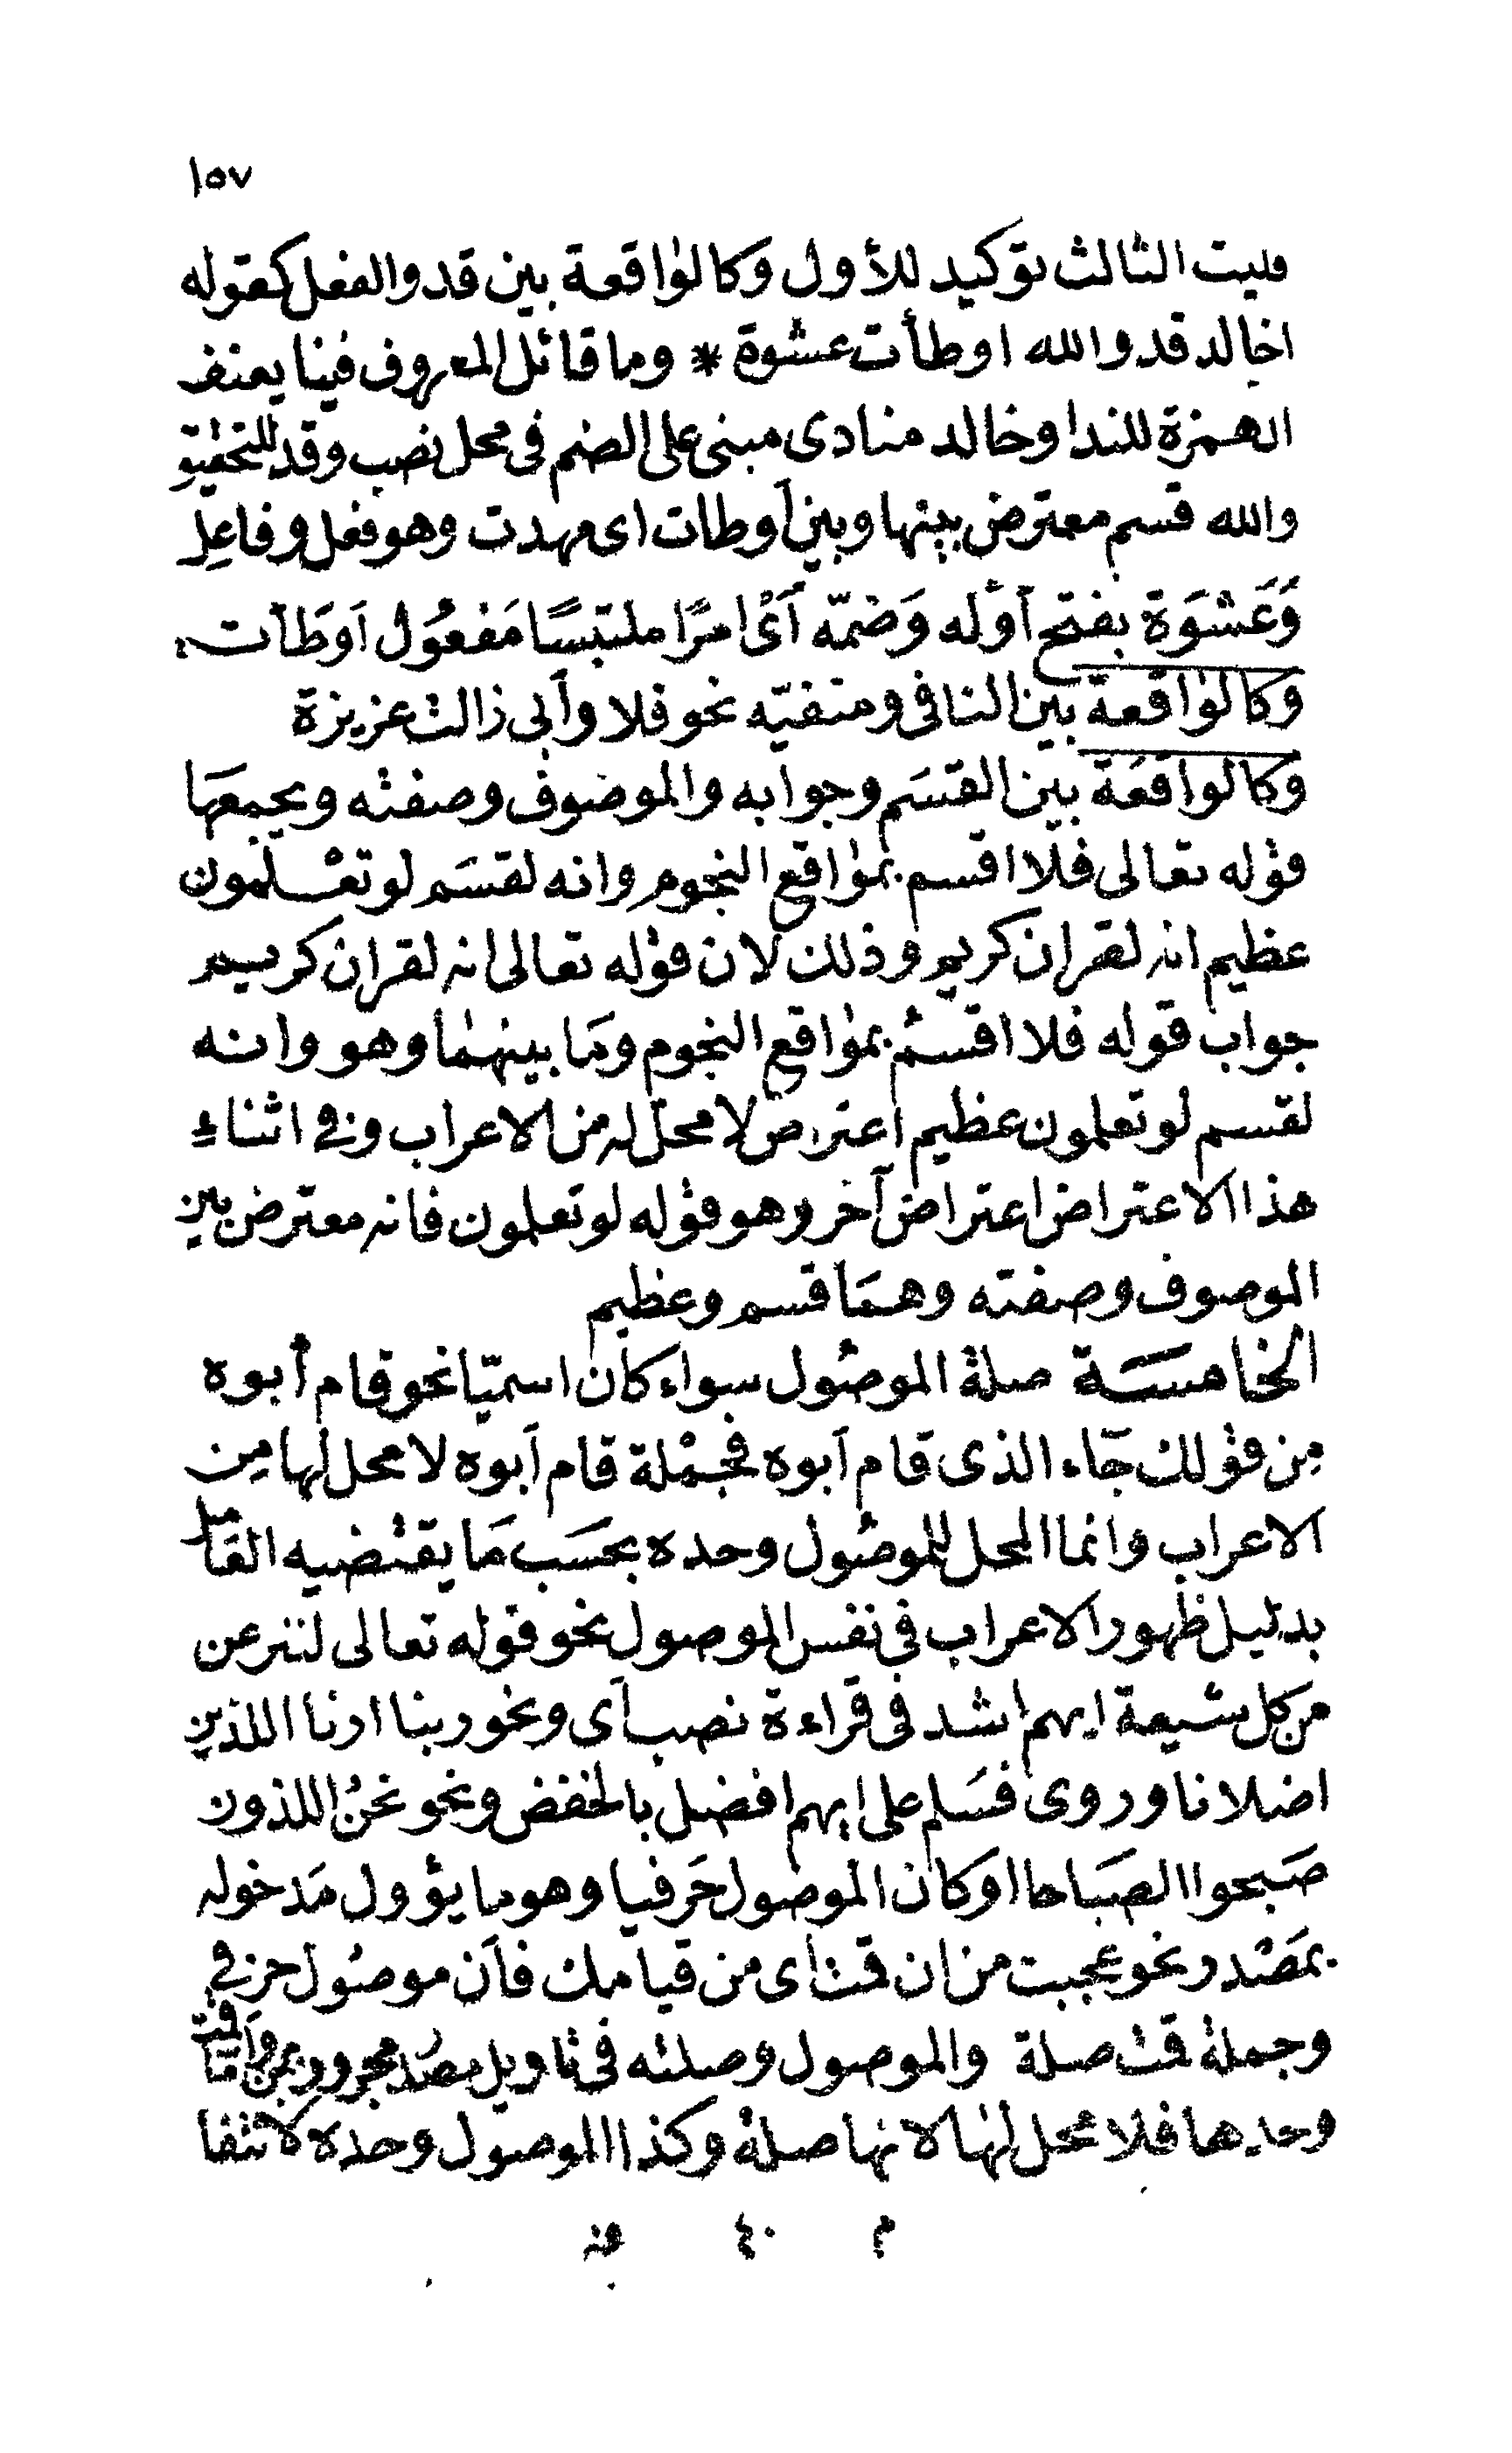 ١٥٧
فليت الثالث توكيد للأول وكالواقعة بين قد والفعل كقوله
اخالد قد والله اوطأت عشوة * وما قائل المعروف فينا يعنف
الهمزة للندا وخالد منادى مبنى على الضم فى محل نصب وقد للتحقيق
والله قسم معترض بينها وبين أوطات اى مهدت وهو فعل وفاعل
وَعَشوَة بفتح أوله وَضمّه أَىْ امرًا ملتبسًا مَفعُول اَوطَأت
وكالواقعة بين النافى ومنفيّه نحو فلا وأبى زالت عزيزة
وكالواقعَة بين القسَم وجوابه والموصوف وصفته ويجمعهَا
قوله تعالى فلا اقسم بمواقع النجوم وانه لقسَم لو تعْلمون
عظيم انه لقران كريم وذلك لان قوله تعالى انه لقران كريم
جواب قوله فلا اقسم بمواقع النجوم ومَا بينهما وهو وانه
لقسم لو تعلمون عظيم اعتراض لا محلّ له من الاعراب وفى اثناء
هذا الاعتراض اعتراض آخر وهو قوله لو تعلمون فانه معترض بين
الموصوف وصفته وهمَا قسم وعظيم
الخامسَة صلة الموصُول سواء كان اسميّا نحو قام أبوه
مِن قولك جَاء الذى قام اَبوه فجمْلة قام اَبوه لا محل لها مِن
الاعراب وانما المحل للموصُول وحده بحسَب مَا يقتضيه العَامل
بدليل ظهور الاعراب فى نفس الموصول نحو قوله تعالى لننزعن
من كل شيعة ايهم اشد فى قراءة نصب أى ونحو ربنا ارنا اللذين
اضلانا وروى فسَلم على ايهم افضل بالخفض ونحو نحنُ اللذون
صَبحوا الصَبَاحا او كان الموصُول حَرفيا وهو ما يؤول مَدخوله
بمَصْدر نحو عجبت من ان قمت اى من قيامك فأن موصُول حرفى
وجملة قمت صلة والموصول وصلته فى تاويل مصدر مجرور بمن وأمّا قمت
وحدها فلا محل لها لانها صلة وكذا الموصول وحده لانتفا
م ٤٠